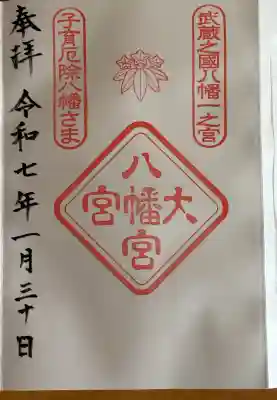 武蔵之國八幡一之宮
子育厄除八幡さま
大宮八幡宮
奉拝 令和七年一月三十日